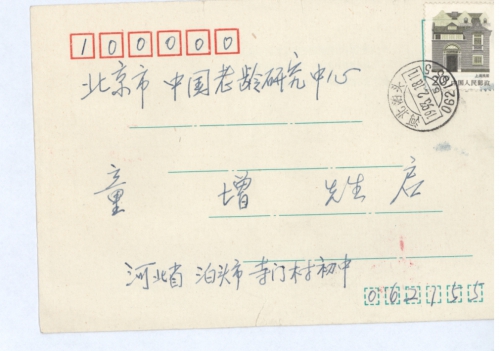 100000
北京市 中国老龄研究中心
童 增 先生 启
河北省 泊头市 寺门村初中
062155
中国人民邮政